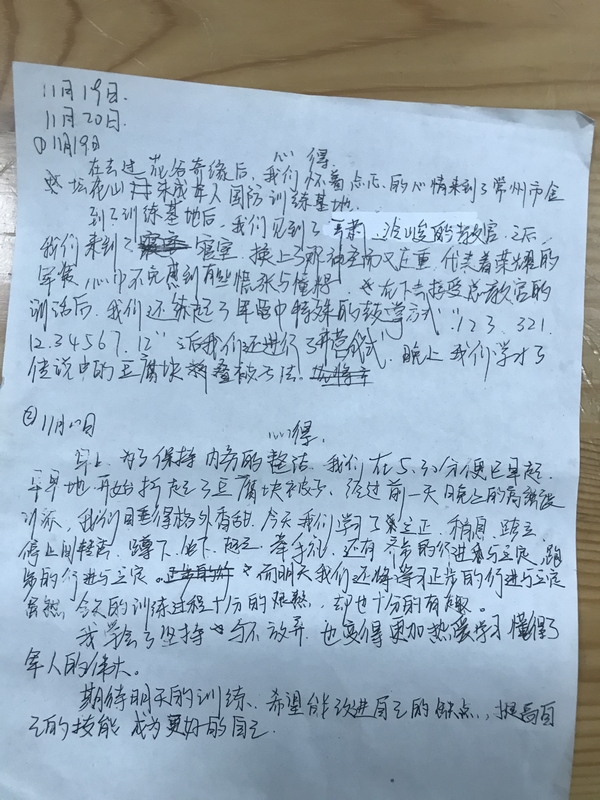 11月19日.
11月20日.
①11月19日
心 得.
在去过花谷奇缘后, 我们怀着忐忑的心情来到了常州市金
坛花山未成年人国防训练基地.
到了训练基地后, 我们见到了 冷峻的教官. 之后,
我们来到了 寝室. 换上了那神圣而又庄重, 代表着荣耀的
军装 心中不免感到有些慌张与憧憬. 在下去接受总教官的
训话后. 我们还练起了军营中特殊的教学方式“123. 321.
12.34567.12”之后我们还进行了开营仪式. 晚上 我们学习了
传说中的豆腐块 叠被方法.
② 11月20日
心得.
早上, 为了保持内务的整洁. 我们在5:30分便已早起.
早早地开始折起了豆腐块被子. 经过前一天晚上的高强度
训练, 我们睡得格外香甜. 今天我们学习了立正. 稍息. 跨立.
停止间转法. 蹲下. 坐下. 起立. 举手礼. 还有齐步的行进与立定, 跑
步的行进与立定。 而明天我们还将学习正步的行进与立定
虽然, 今天的训练过程十分的艰熬, 却也十分的有趣。
我学会了坚持 与不放弃. 也变得更加热爱学习 懂得了
军人的伟大。
期待明天的训练、希望能改进自己的缺点, 提高自
己的技能 成为更好的自己.